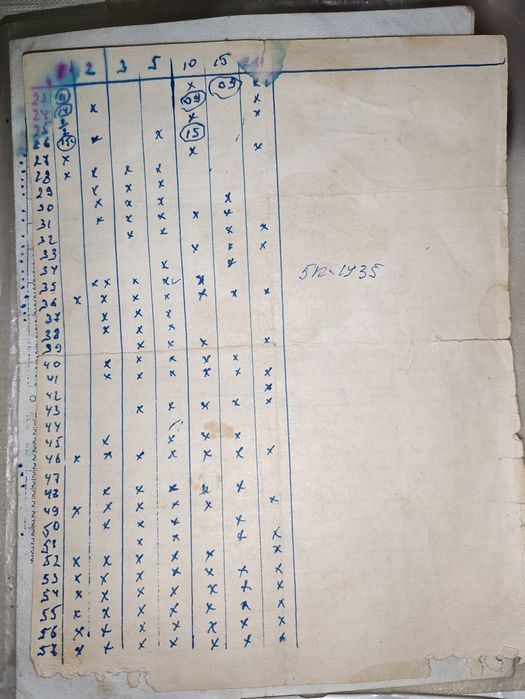 2 3 5 10 15
23 x 09 x
24 x 09 x
25 x x
26 x x 15
27 x x x
28 x x x x
29 x x x
30 x x x x
31 x x x x x
32 x x x x
33 x x x
34 x x
35 x x x x v x
36 x x x x x x x
37 x x x
38 x x x
39 x x x x
40 x x x x x
41 x x x x x x
42 x
43 x x x x x
44
45 x x x x
46 x x x x x x x
47
48 x x x x x
49 x x x x x x
50 x x x x
51 x x x x
52 x x x x x x
53 x x x x x x x
54 x x x x x x x
55 x x x x x x x
56 x x x x x x x
57 x x x x x x x
5к-1935